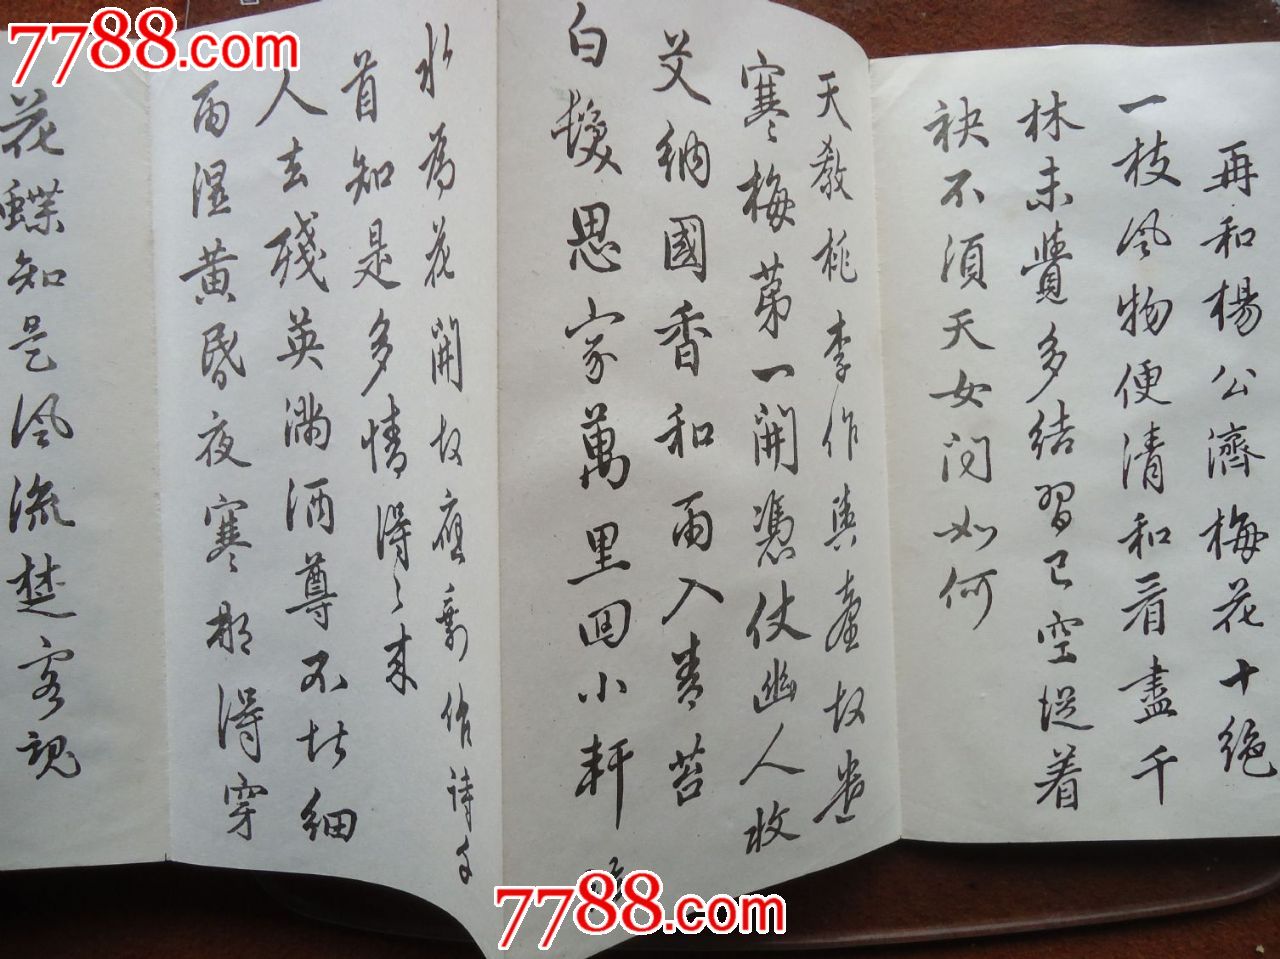 再和楊公濟梅花十絕
一枝風物便清和看盡千
林未覺多結習已空從着
袂不須天女問如何
天教桃李作輿臺故遣
寒梅第一開憑仗幽人收
艾納國香和雨入青苔
白髮思家萬里回小軒
水為花開故應剩作詩千
首知是多情得得來
人去殘英滿酒尊不堪細
雨濕黃昏夜寒那得穿
花蝶知是風流楚客魂
7788.com
7788.com
7788.com